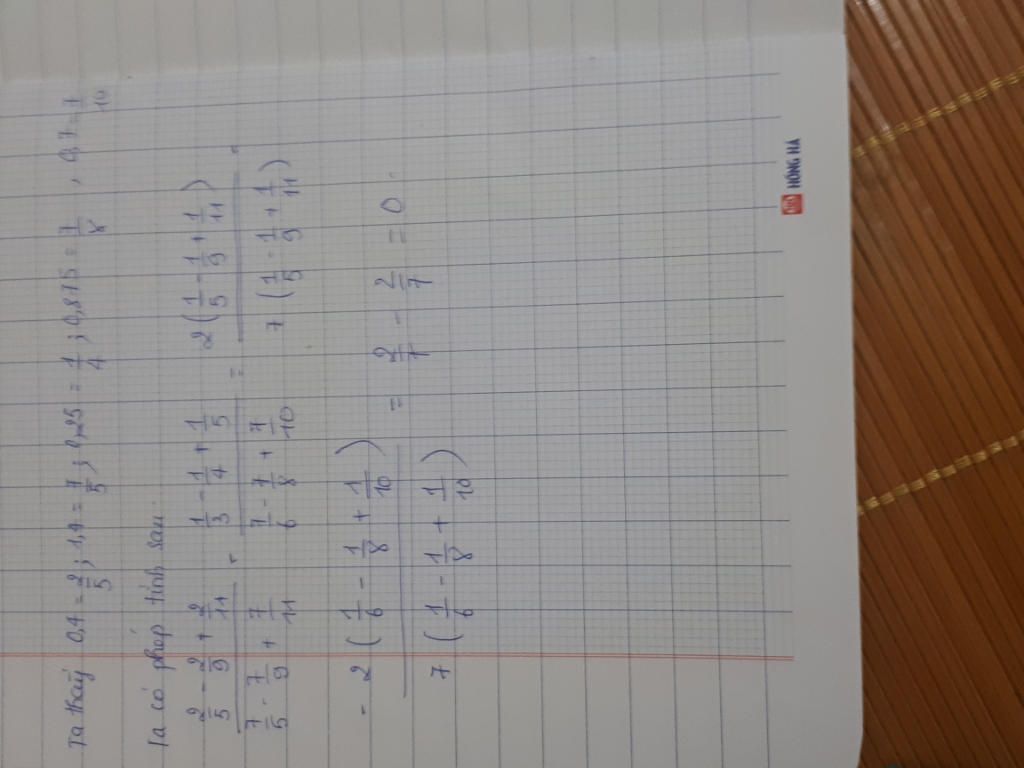 Ta thấy 0,4 = 2/5 ; 1,4 = 7/5 ; 0,25 = 1/4 ; 0,875 = 7/8 , 0,7 = 7/10
Ta có phép tính sau
(2/5 - 2/9 + 2/11)/(7/5 - 7/9 + 7/11) - (1/3 - 1/4 + 1/5)/(7/6 - 7/8 + 7/10) = 2(1/5 - 1/9 + 1/11)/7(1/5 - 1/9 + 1/11)
- 2(1/6 - 1/8 + 1/10)/7(1/6 - 1/8 + 1/10) = 2/7 - 2/7 = 0.
HỒNG HÀ